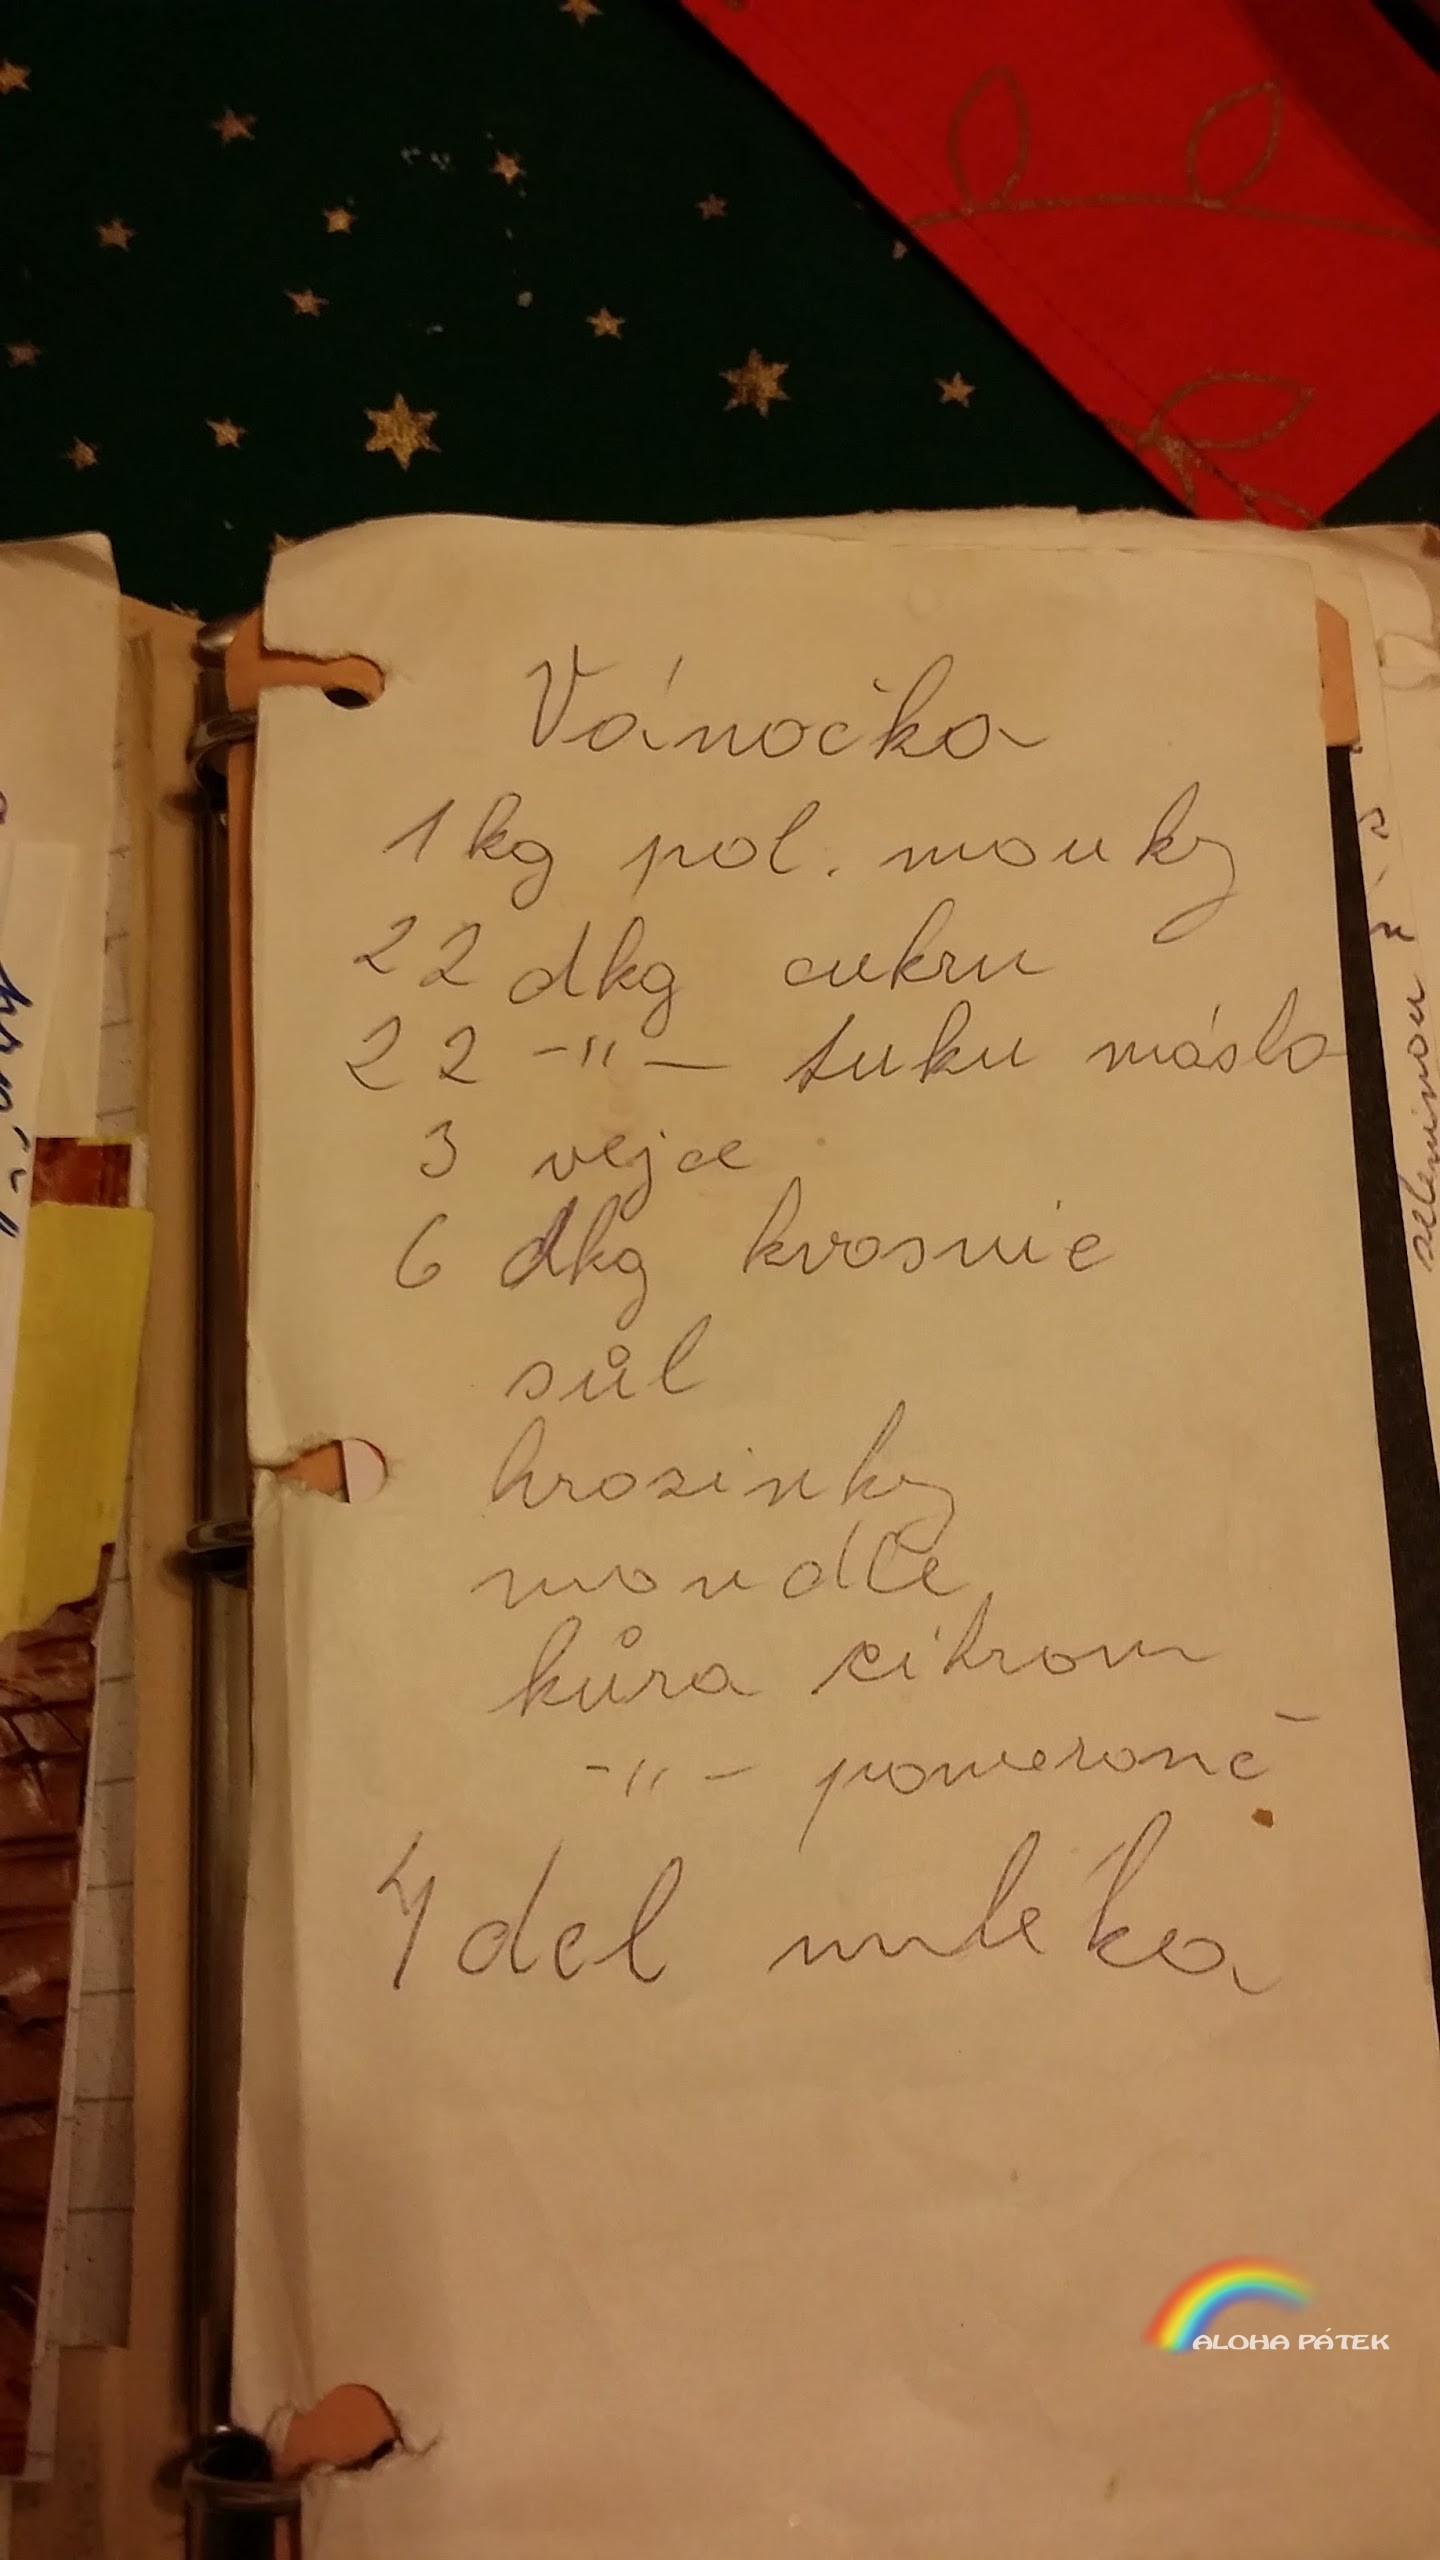 Vánočka
1 kg pol. mouky
22 dkg cukru
22 -"- tuku máslo
3 vejce
6 dkg kvasnic
sůl
hrozinky
mandle
kůra citron
-"- pomeranč
4 del mléka
zeleninou
ALOHA PÁTEK